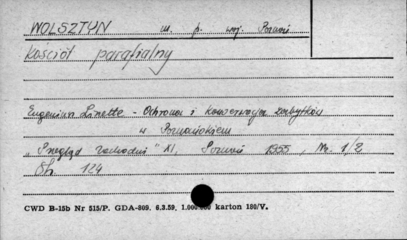 WOLSZTYN m. p. woj. Poznań
Kościół parafialny
Eugeniusz Linette - Ochrona i konserwacja zabytków
w Poznańskiem
"Przegląd Zachodni" XI, Poznań 1955, Nr. 1/2
Sh. 124
CWD B-15b Nr 515/P. GDA-809. 6.3.59. 1.000 karton 180/V.